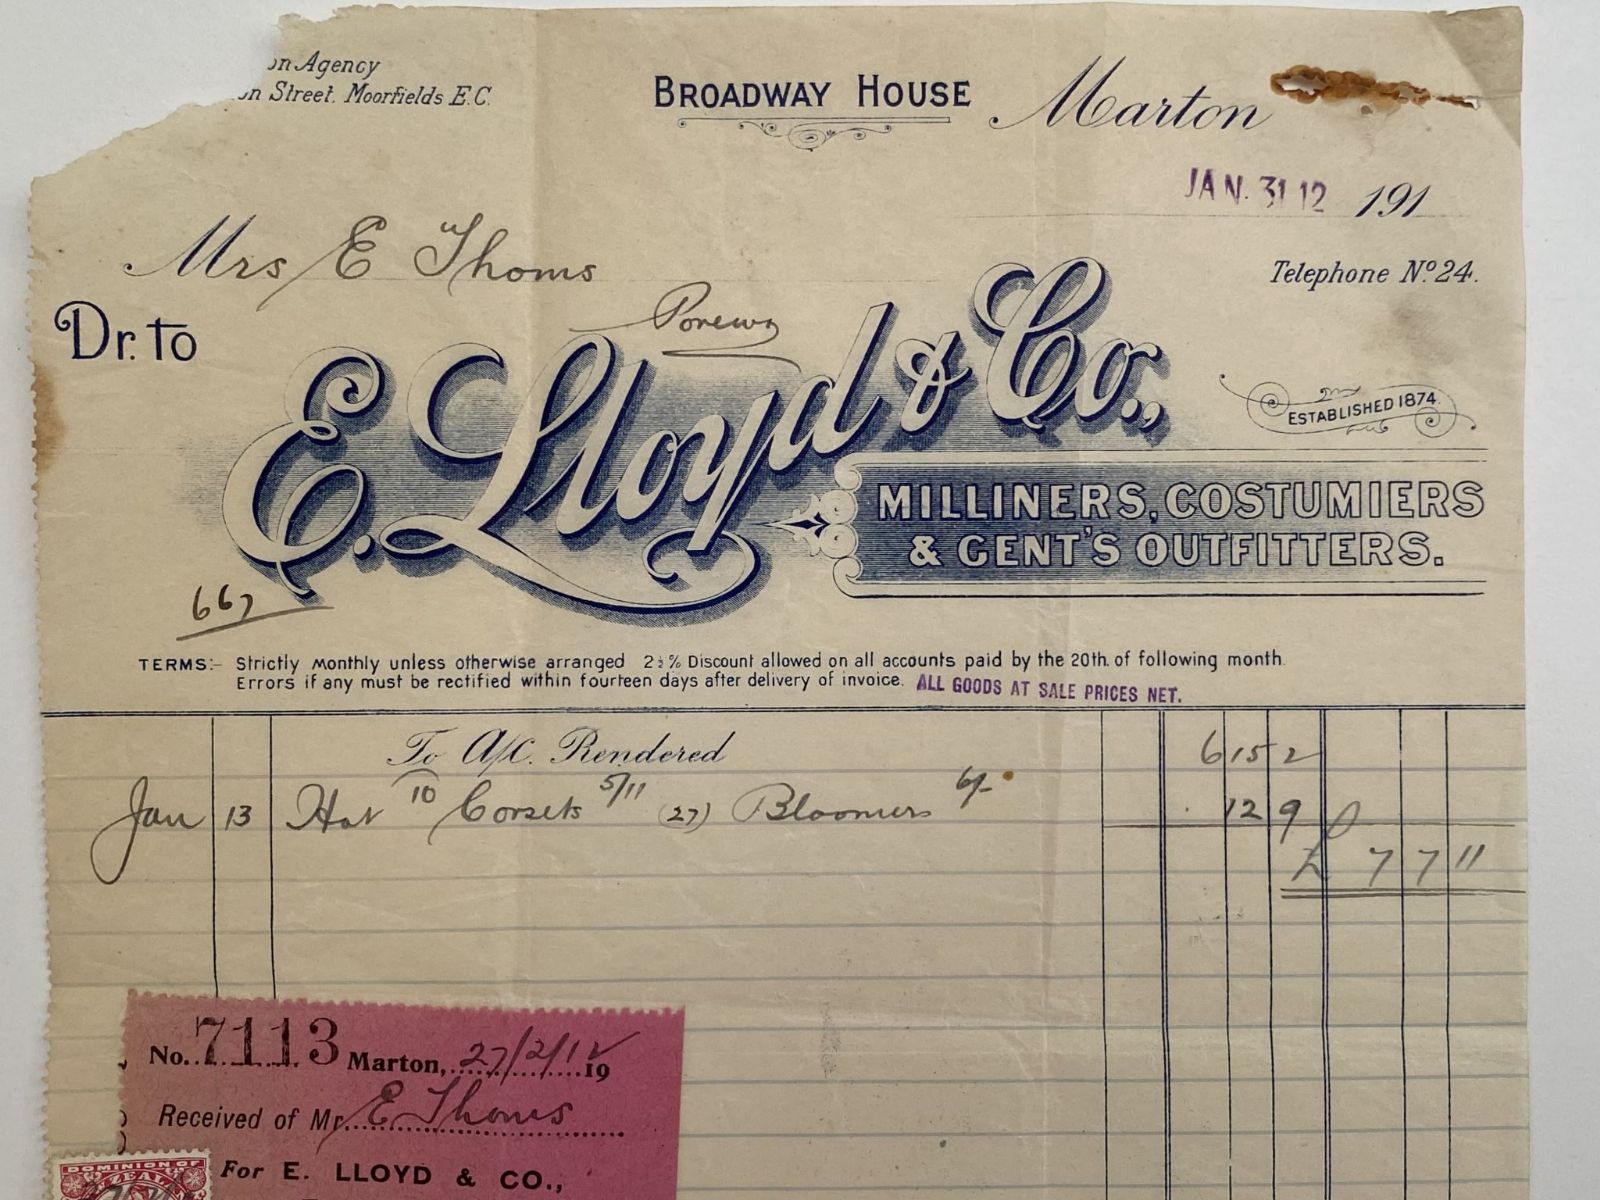 on Agency
on Street. Moorfields E.C.
BROADWAY HOUSE
Marton
JAN. 31 12 191
Mrs E Thoms
Telephone No. 24.
Dr. to
Porewa
E. Lloyd & Co.,
ESTABLISHED 1874.
MILLINERS, COSTUMIERS
& GENT'S OUTFITTERS.
667
TERMS:- Strictly Monthly unless otherwise arranged 2½% Discount allowed on all accounts paid by the 20th. of following month.
Errors if any must be rectified within fourteen days after delivery of invoice. ALL GOODS AT SALE PRICES NET.
To A/C. Rendered 6 15 2
Jan 13 Hat 10 Corsets 5/11 (27) Bloomers 6/- 12 9
£ 7 7 11
No. 7113 Marton, 27/2/12 19
Received of Mr E Thoms
For E. LLOYD & CO.,
DOMINION OF